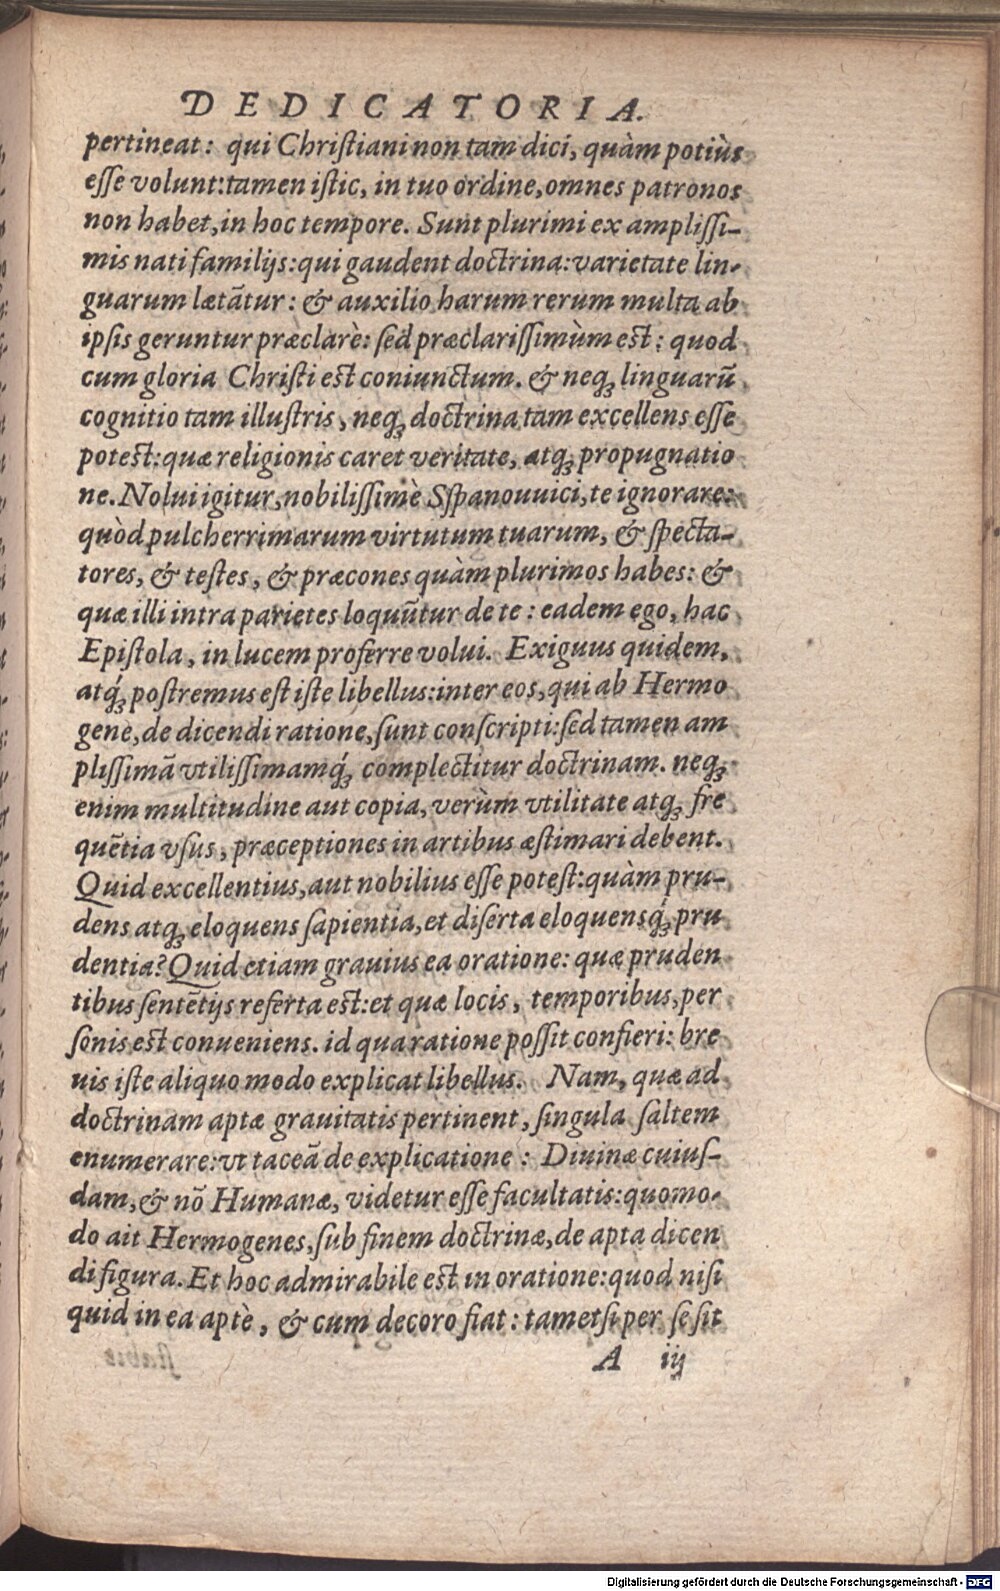 DEDICATORIA.
pertineat: qui Chriſtiani non tam dici, quàm potiùs
eſſe volunt: tamen iſtic, in tuo ordine, omnes patronos
non habet, in hoc tempore. Sunt plurimi ex ampliſſi-
mis nati familijs: qui gaudent doctrina: varietate lin-
guarum lætãtur: & auxilio harum rerum multa ab
ipſis geruntur præclarè: ſed præclariſſimùm est: quod
cum gloria Chriſti est coniunctum. & neqꝫ linguarũ
cognitio tam illuſtris, neqꝫ doctrina tam excellens eſſe
potest: quæ religionis caret veritate, atqꝫ propugnatio
ne. Nolui igitur, nobiliſſimè Sſpanouuici, te ignorare:
quòd pulcherrimarum virtutum tuarum, & ſpecta-
tores, & teſtes, & præcones quàm plurimos habes: &
quæ illi intra parietes loquũtur de te: eadem ego, hac
Epiſtola, in lucem proferre volui. Exiguus quidem,
atqꝫ́ poſtremus eſt iſte libellus: inter eos, qui ab Hermo
gene, de dicendi ratione, ſunt conſcripti: ſed tamen am
pliſſimã vtiliſſimamqꝫ́ complectitur doctrinam. neqꝫ
enim multitudine aut copia, verùm vtilitate atqꝫ fre
quẽtia vſus, præceptiones in artibus æſtimari debent.
Quid excellentius, aut nobilius eſſe poteſt: quàm pru-
dens atqꝫ eloquens ſapientia, et diſerta eloquensqꝫ́ pru
dentia? Quid etiam grauius ea oratione: quæ pruden
tibus ſentẽtijs referta est: et quæ locis, temporibus, per
ſonis est conueniens. id qua ratione poſſit confieri: bre
uis iſte aliquo modo explicat libellus. Nam, quæ ad
doctrinam aptæ grauitatis pertinent, ſingula ſaltem
enumerare: vt taceã de explicatione: Diuinæ cuiuſ-
dam, & nõ Humanæ, videtur eſſe facultatis: quomo-
do ait Hermogenes, ſub finem doctrinæ, de apta dicen
di figura. Et hoc admirabile est in oratione: quod niſi
quid in ea aptè, & cum decoro fiat: tametſi per ſe ſit
A iij
Digitalisierung gefördert durch die Deutsche Forschungsgemeinschaft - DFG